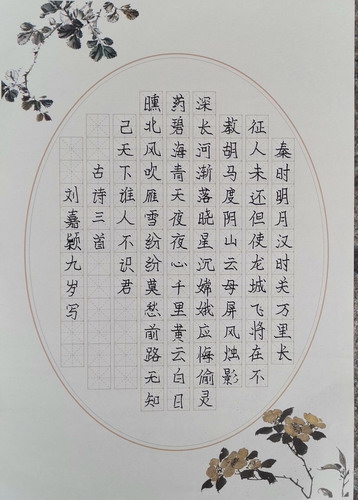 秦时明月汉时关万里长
征人未还但使龙城飞将在不
教胡马度阴山云母屏风烛影
深长河渐落晓星沉嫦娥应悔偷灵
药碧海青天夜夜心千里黄云白日
曛北风吹雁雪纷纷莫愁前路无知
己天下谁人不识君
古诗三首
刘嘉颖九岁写